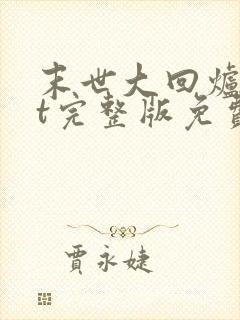 末世大回爐
t完整版免費
賈永婕